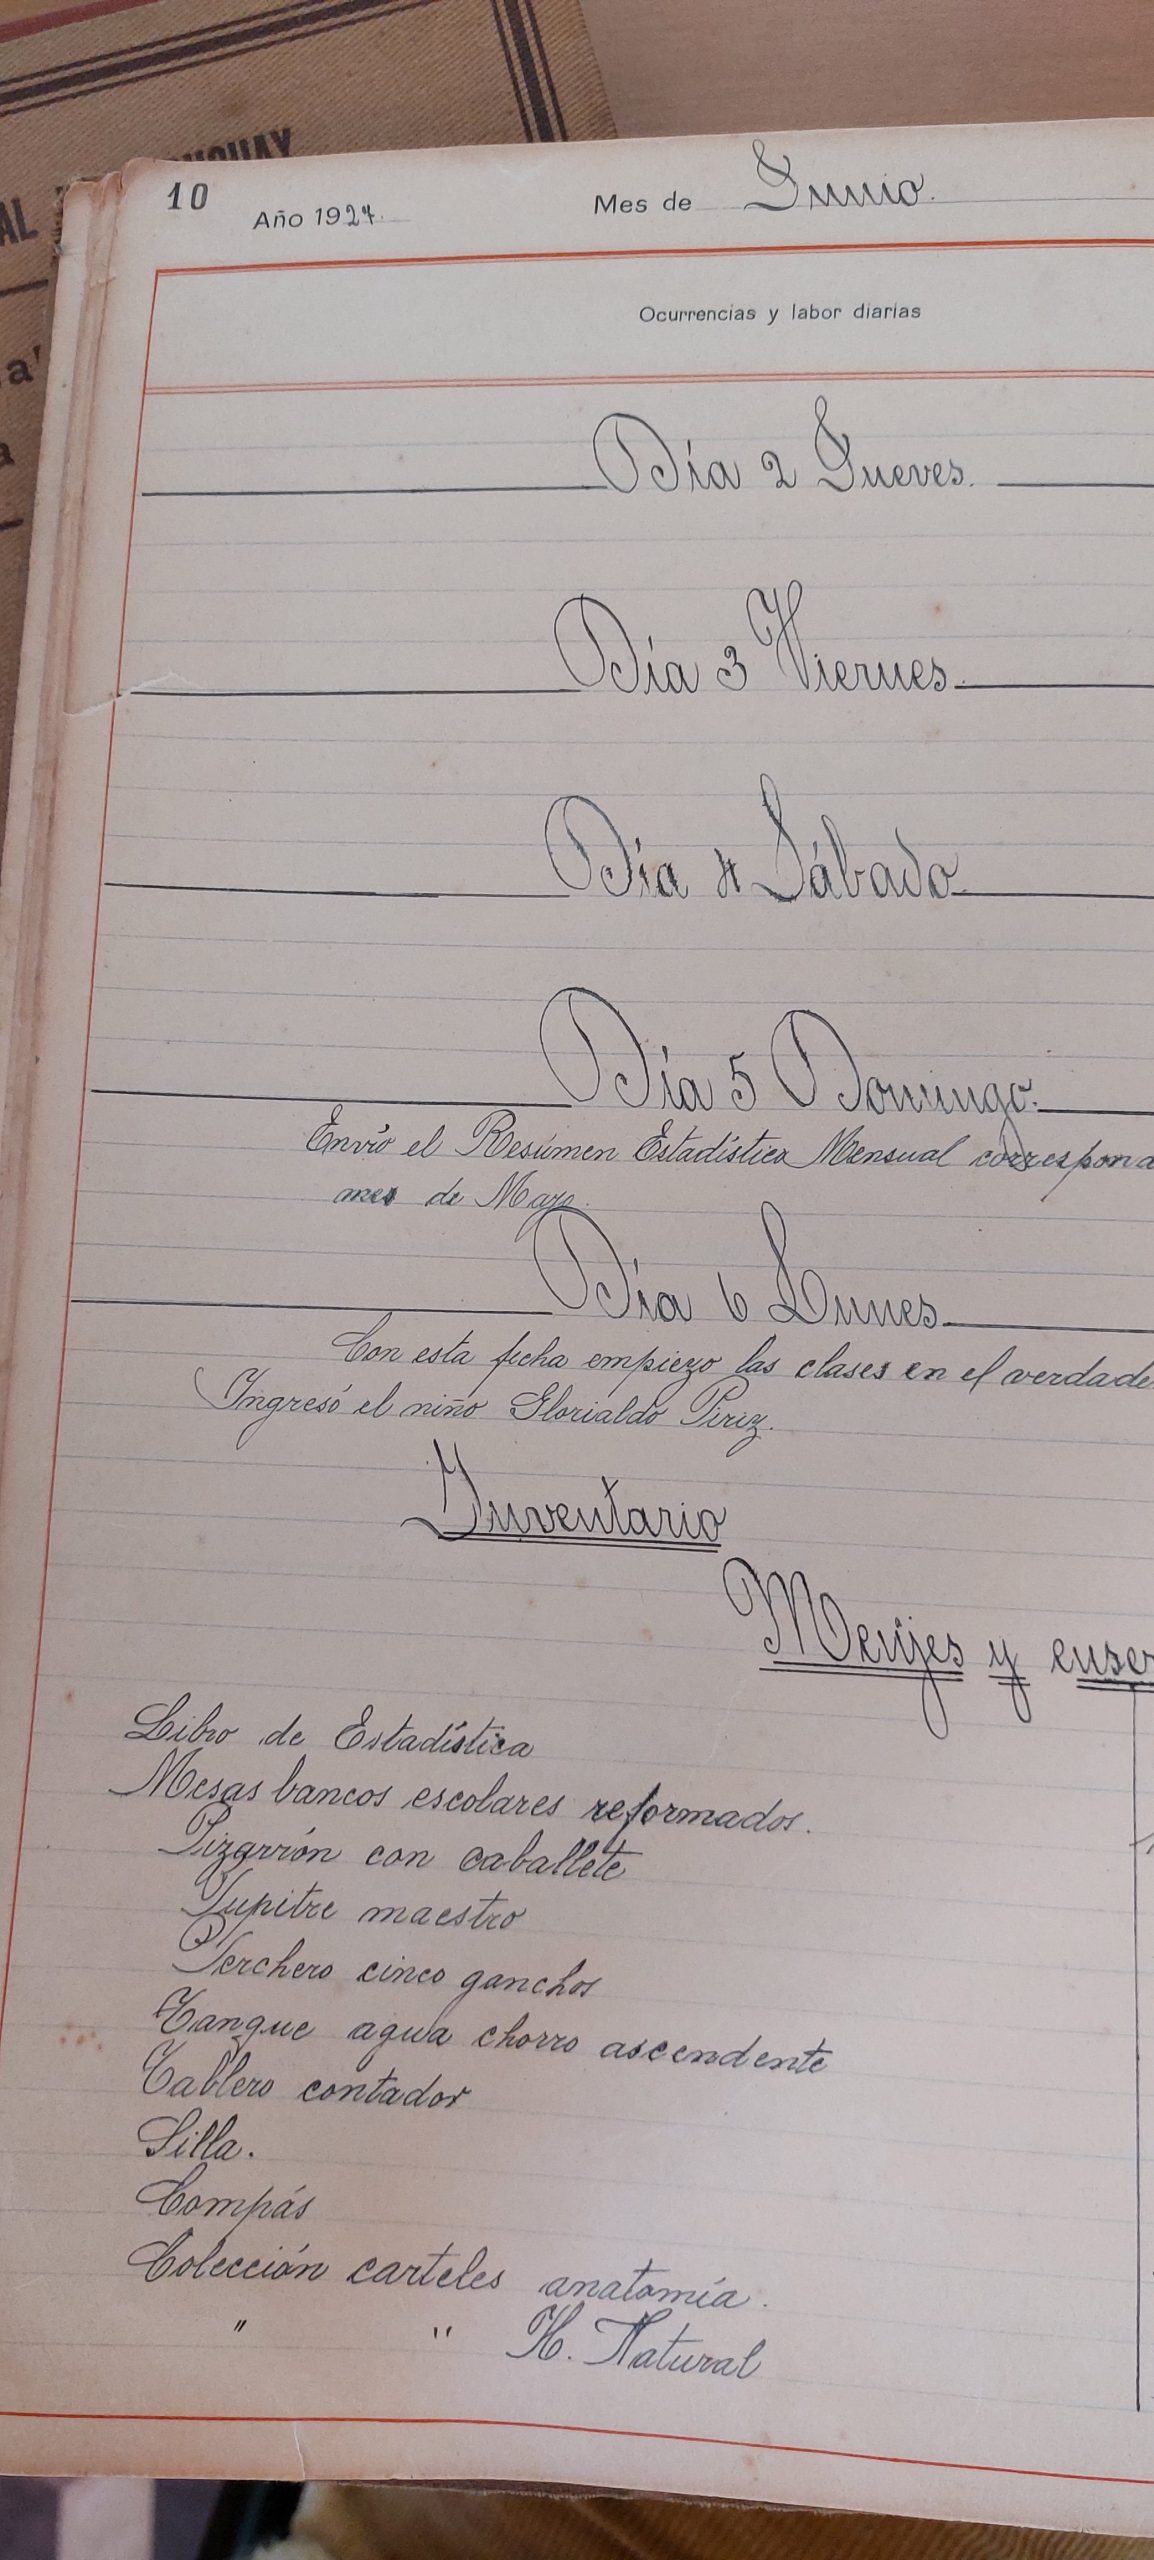 UGUAY
AL
a"
a
10
Año 1927.
Mes de Junio.
Ocurrencias y labor diarias
Día 2 Jueves.
Día 3 Viernes.
Día 4 Sábado
Día 5 Domingo.
Envío el Resúmen Estadístico Mensual correspond
mes de Mayo.
Día 6 Lunes.
Con esta fecha empiezo las clases en el verdade
Ingresó el niño Glorialdo Piriz.
Inventario
Menjes y enser
Libro de Estadística
Mesas bancos escolares reformados.
Pizarrón con caballete
Pupitre maestro
Perchero cinco ganchos
Tanque agua chorro ascendente
Tablero contador
Silla.
Compás
Colección carteles anatomía.
" " H. Natural